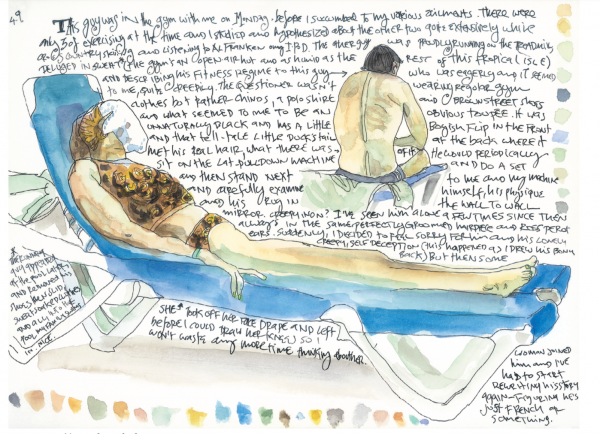 49
THIS guy was in the gym with me on Monday before I succumbed to my various ailments. There were
only 3 of exercising at the time and I studied and hypothesized about the other two quite extensively while
cross country skiing and listening to Al Franken and IPOD. The other guy was profusely running on the treadmill
deluged in sweat (the gym's an open air hut and as humid as the REST of this tropical isle)
and describing his fitness regime to this guy who was eager and it seemed
to me, quite creepily. The questioner wasn't wearing regular gym
clothes but rather chinos, a polo shirt and brown street shoes
and what seemed to me to be an obvious toupee. It was
unnaturally black and has a little Boyish Flip in the front
and that tell-tale little ducks tail at the back where it
met his real hair, what there was of it. He would periodically
sit on the lat pulldown machine and do a set
and then stand next to me and my machine
and carefully examine himself, his physique
and his rug in the wall to wall
mirror. Creepy, hmm? I've seen him alone a few times since then
always in the same perfectly groomed hairpiece and Ross Perot
ears. Suddenly, I decided to feel sorry for him and his lonely
creepy, self deception (this happened as I drew his bony
back) But then some
woman joined
him and I've
had to start
rewriting his story
again - Figuring he's
just French or
something.
The running
guy appeared
at the pool later
and removed his
shoes, then slid,
sweat soaked clothes
and all, into the
pool
in nice.
She took off her face drape and left
before I could draw her knees so I
won't waste any more time thinking about her.